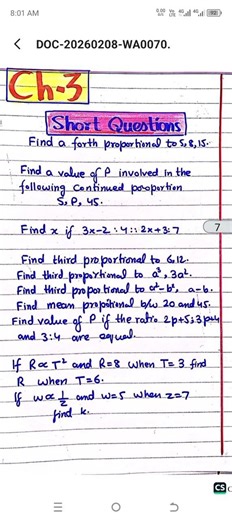 8:01 AM
DOC-20260208-WA0070.
Ch-3
Short Questions
Find a forth proportional to 5,8,15.
Find a value of P involved in the
following Continued proportion
5, P, 45.
Find x if 3x-2:4::2x+3:7
7
Find third proportional to 6,12.
Find third proportional to a³, 3a².
Find third proportional to a²-b², a-b.
Find mean propotional b/w 20 and 45.
Find value of P if the ratio 2p+5:3p+4
and 3:4 are equal.
If R∝T² and R=8 when T=3 find
R when T=6.
If w∝1/z and w=5 when z=7
find k.
CS